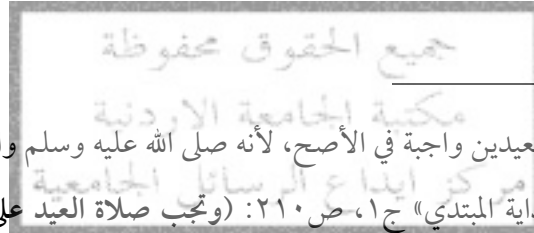 جميع الحقوق محفوظة
مكتبة الجامعة الاردنية
عيدين واجبة في الأصح، لأنه صلى الله عليه وسلم
مركز ايداع الرسائل الجامعية
داية المبتدي» ج١، ص٢١٠: (وتجب صلاة العيد